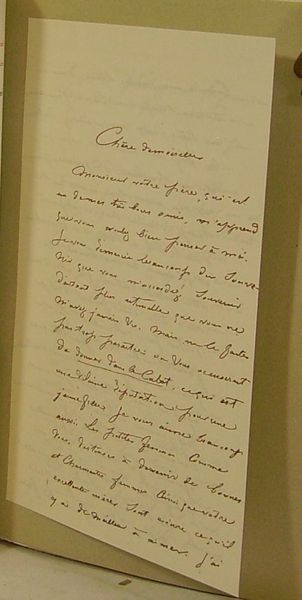 Chère demoiselle
Monsieur votre père, qui est
un de mes très bons amis, m'apprend
que vous voulez bien penser à moi.
Je vous remercie beaucoup du souve-
nir que vous m'accordez! Souvenir
d'autant plus que vous ne
m'avez jamais vu. Mais
pas trop vous
de donner dans le Cabot, ce qui est
une vilaine réputation pour une
jeune fille. Je vous aime beaucoup
aussi. Les petites femmes comme
vous, destinées à devenir de bonnes
et charmantes femmes ainsi que votre
excellente mère, sont encore ce qu'il
y a de meilleur à aimer. J'ai